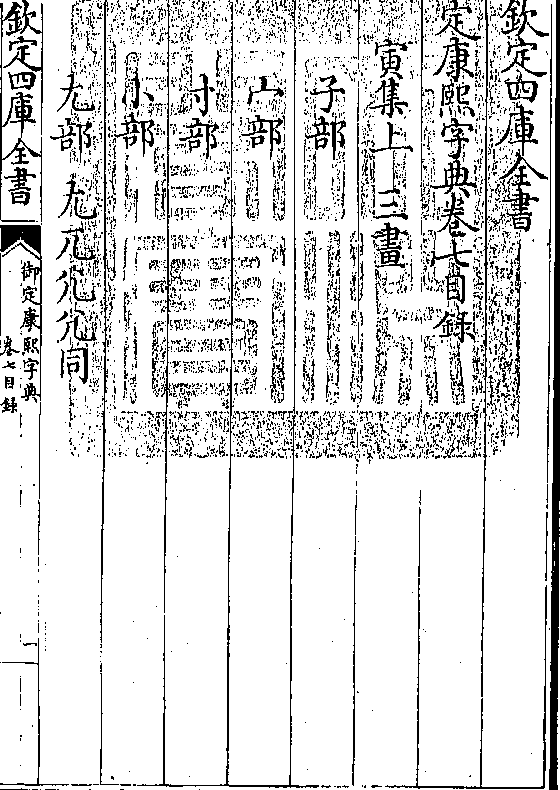 欽定四庫全書
定康熙字典卷七目録
寅集上 三畫
子部
宀部
寸部
小部
尢部 尢兀尣同
欽定四庫全書
御定康熙字典
卷七目録
一